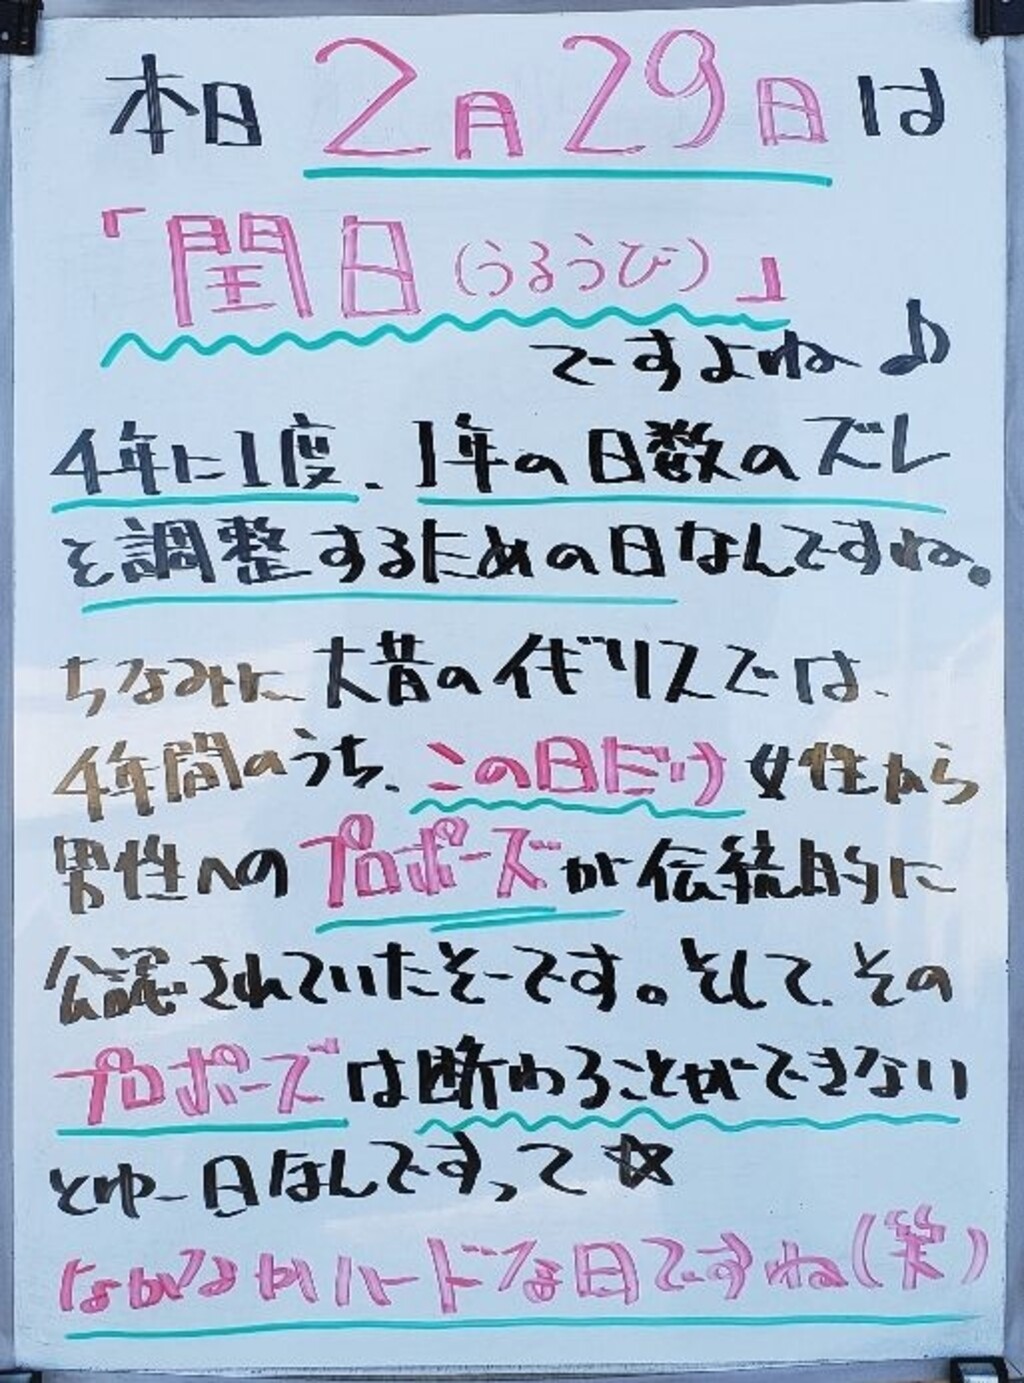 本日2月29日は
「閏日(うるうび)」
ですよね♪
4年に1度、1年の日数のズレ
を調整するための日なんですね。
ちなみに大昔のイギリスでは、
4年間のうち、この日だけ女性から
男性へのプロポーズが伝統的に
公認されていたそーです。そして、その
プロポーズは断わることができない
とゆー日なんですって☆
なかなかハードな日ですね(笑)